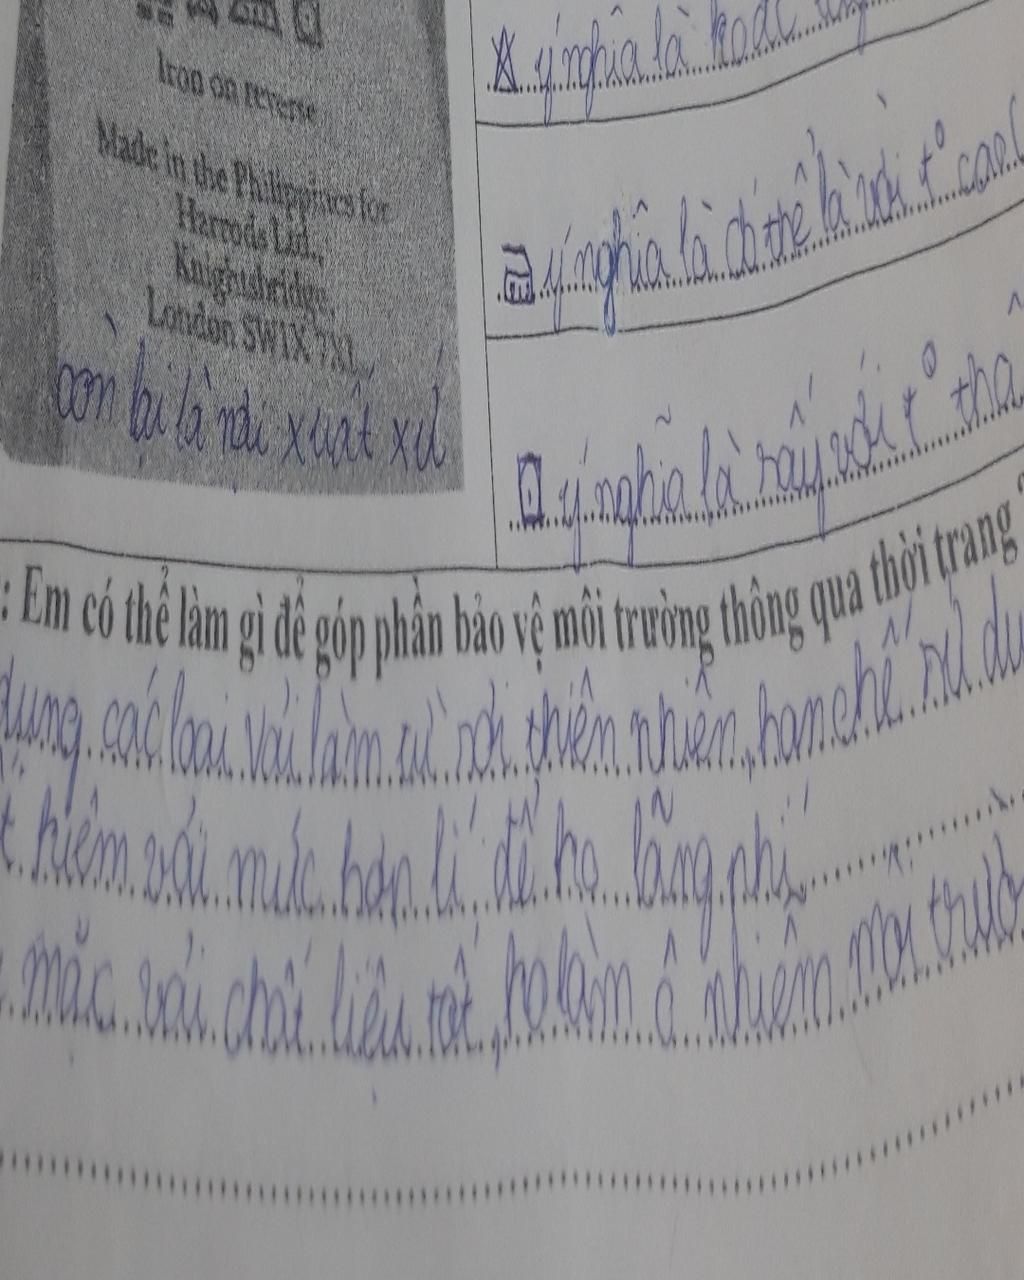 Iron on reverse
Made in the Philippines for
Harrods Ltd.,
Knightsbridge,
London SW1X 7XL
còn lại là nơi xuất xứ
ý nghĩa là
ý nghĩa là có thể là với t° cao
ý nghĩa là sấy với t°
: Em có thể làm gì để góp phần bảo vệ môi trường thông qua thời trang
dụng các loại vải làm từ sợi thiên nhiên, hạn chế sử
kiệm vải mức hợp lí để ko lãng phí
mặc vải chất liệu tốt, ko làm ô nhiễm môi